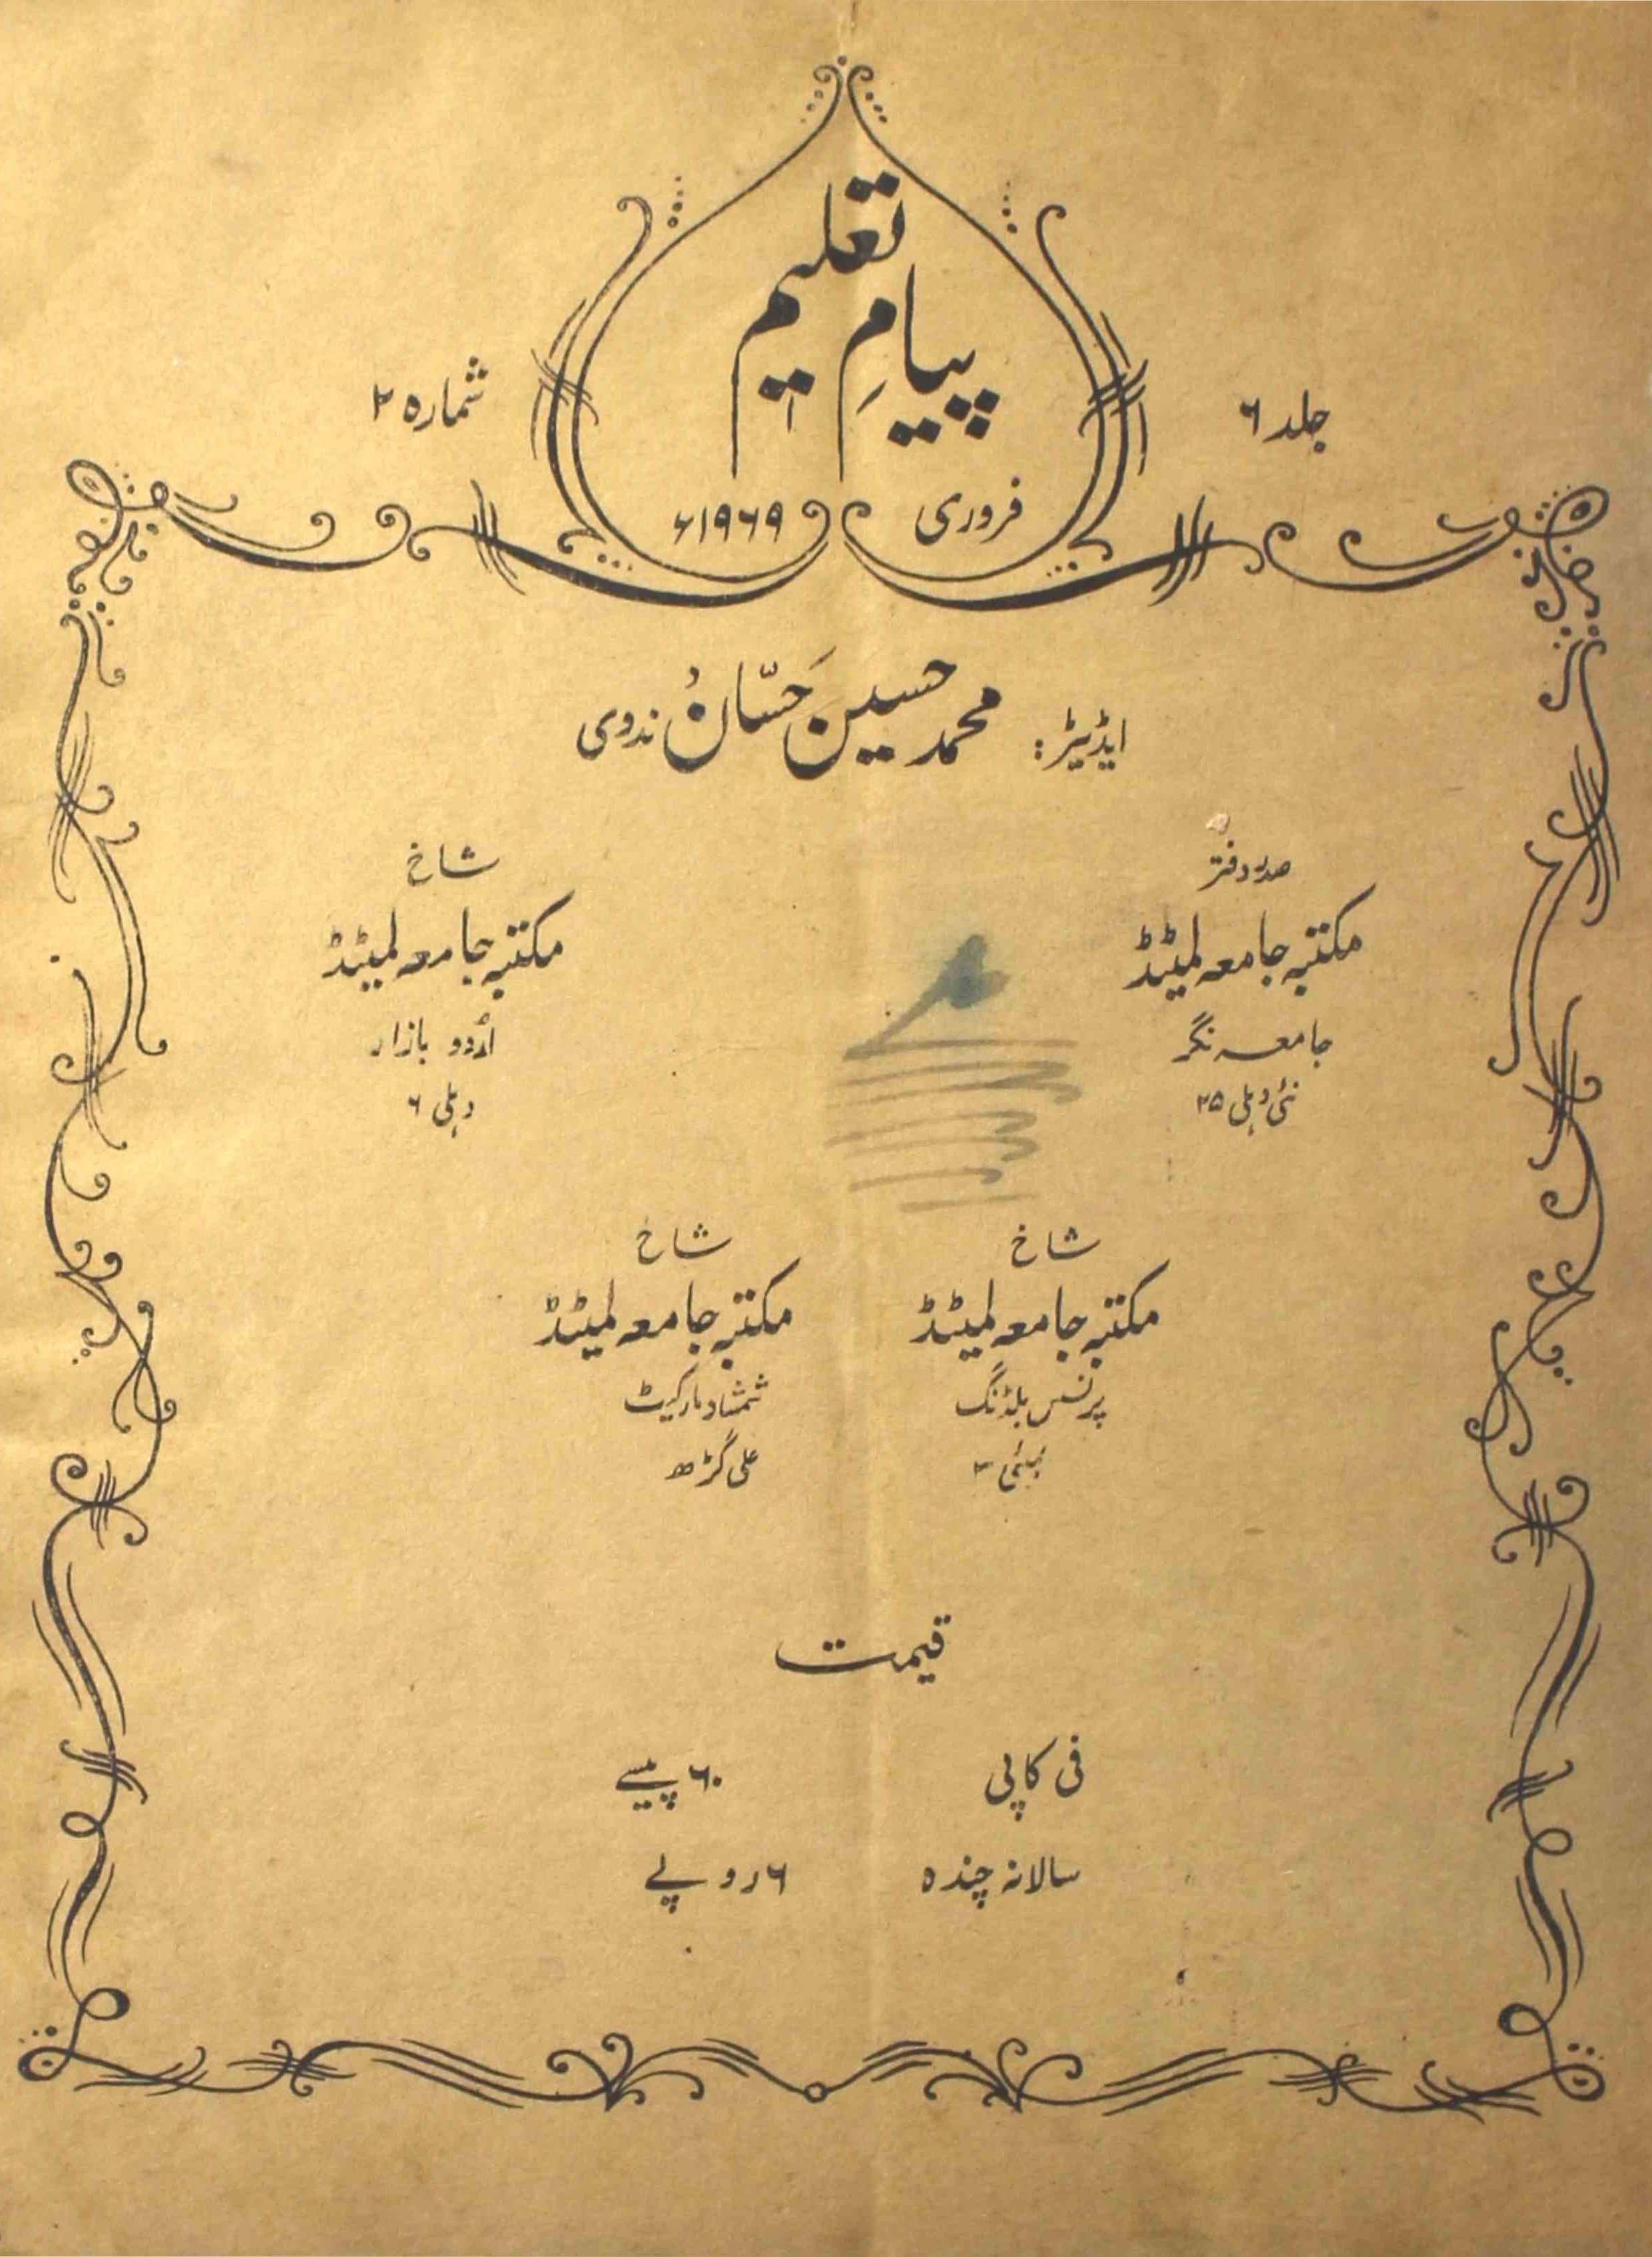 پیامِ تعلیم
جلد ۶
شمارہ ۲
فروری ۱۹۶۹ء
ایڈیٹر: محمد حسین حَسّان ندوی
صدر دفتر
مکتبہ جامعہ لمیٹڈ
جامعہ نگر
نئی دہلی ۲۵
شاخ
مکتبہ جامعہ لمیٹڈ
اُردو بازار
دہلی ۶
شاخ
مکتبہ جامعہ لمیٹڈ
پرنسس بلڈنگ
بمبئی ۳
شاخ
مکتبہ جامعہ لمیٹڈ
شمشاد مارکیٹ
علی گڑھ
قیمت
فی کاپی ۶۰ پیسے
سالانہ چندہ ۶ روپے